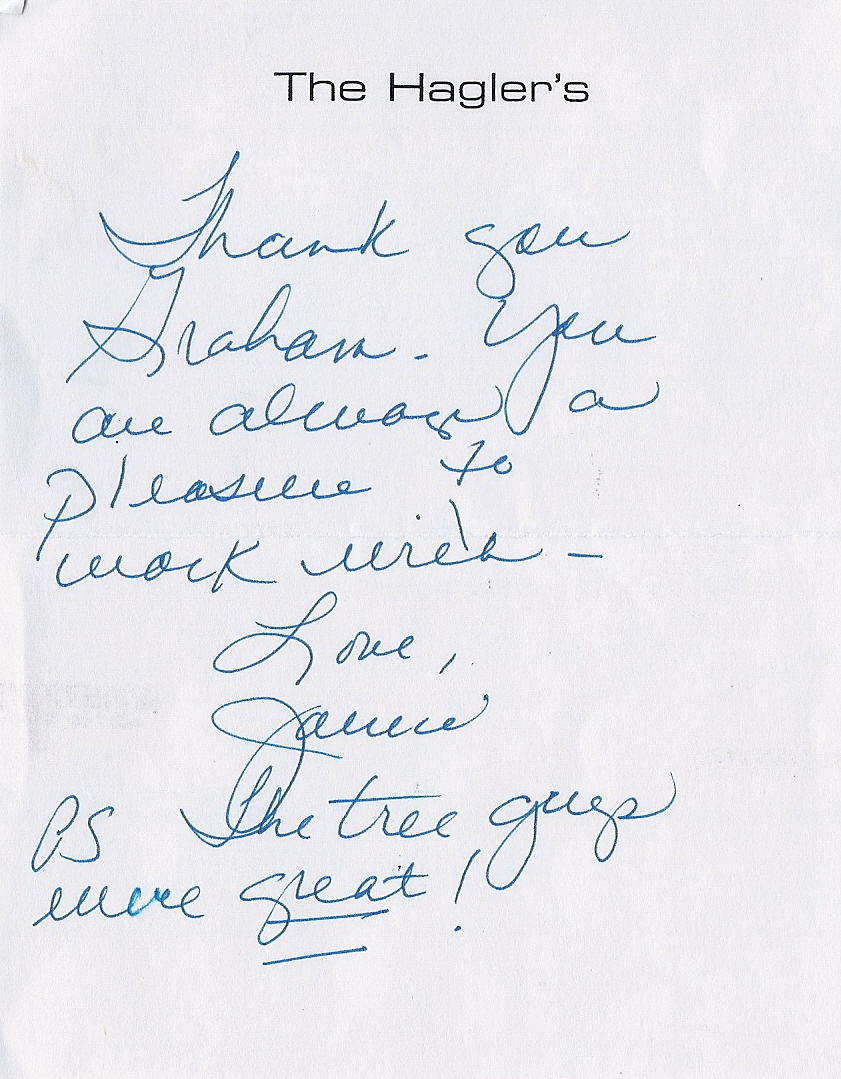 The Hagler's
Thank you
Graham - You
are always a
pleasure to
work with -
Love,
PS The tree guys
were great!